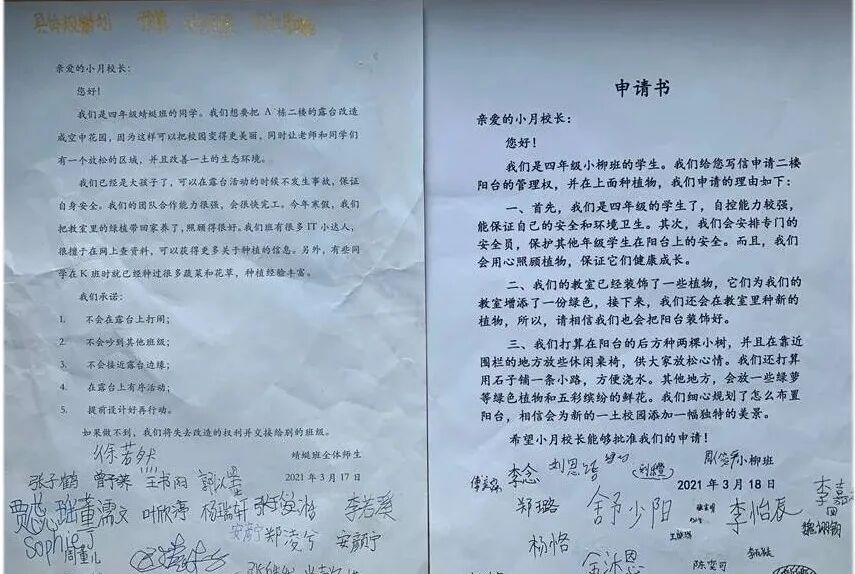 亲爱的小月校长：
您好！
我们是四年级蜻蜓班的同学。我们想要把 A 栋二楼的露台改造
成空中花园，因为这样可以把校园变得更美丽，同时让老师和同学们
有一个放松的区域，并且改善一土的生态环境。
我们已经是大孩子了，可以在露台活动的时候不发生事故，保证
自身安全。我们的团队合作能力很强，会很快完工。今年寒假，我们
把教室里的绿植带回家养了，照顾得很好。我们班有很多 IT 小达人，
很擅于在网上查资料，可以获得更多关于种植的信息。另外，有些同
学在 K 班时就已经种过很多蔬菜和花草，种植经验丰富。
我们承诺：
1. 不会在露台上打闹；
2. 不会吵到其他班级；
3. 不会接近露台边缘；
4. 在露台上有序活动；
5. 提前设计好再行动。
如果做不到，我们将失去改造的权利并交接给别的班级。
蜻蜓班全体师生
2021 年 3 月 17 日
徐若然
张子鹤
叶欣淳
杨瑞轩
李若溪
郑凌兮
安蔚宁
Sophie J
周童儿
申请书
亲爱的小月校长：
您好！
我们是四年级小柳班的学生。我们给您写信申请二楼
阳台的管理权，并在上面种植物，我们申请的理由如下：
一、首先，我们是四年级的学生了，自控能力较强，
能保证自己的安全和环境卫生。其次，我们会安排专门的
安全员，保护其他年级学生在阳台上的安全。而且，我们
会用心照顾植物，保证它们健康成长。
二、我们的教室已经装饰了一些植物，它们为我们的
教室增添了一份绿色，接下来，我们还会在教室里种新的
植物，所以，请相信我们也会把阳台装饰好。
三、我们打算在阳台的后方种两棵小树，并且在靠近
围栏的地方放些休闲桌椅，供大家放松心情。我们还打算
用石子铺一条小路，方便浇水。其他地方，会放一些绿萝
等绿色植物和五彩缤纷的鲜花。我们细心规划了怎么布置
阳台，相信会为新的一土校园添加一幅独特的美景。
希望小月校长能够批准我们的申请！
小柳班
2021 年 3 月 18 日
李念
刘恩语
郑璐
舒少阳
李怡辰
杨恪
金沐恩
陈奕可